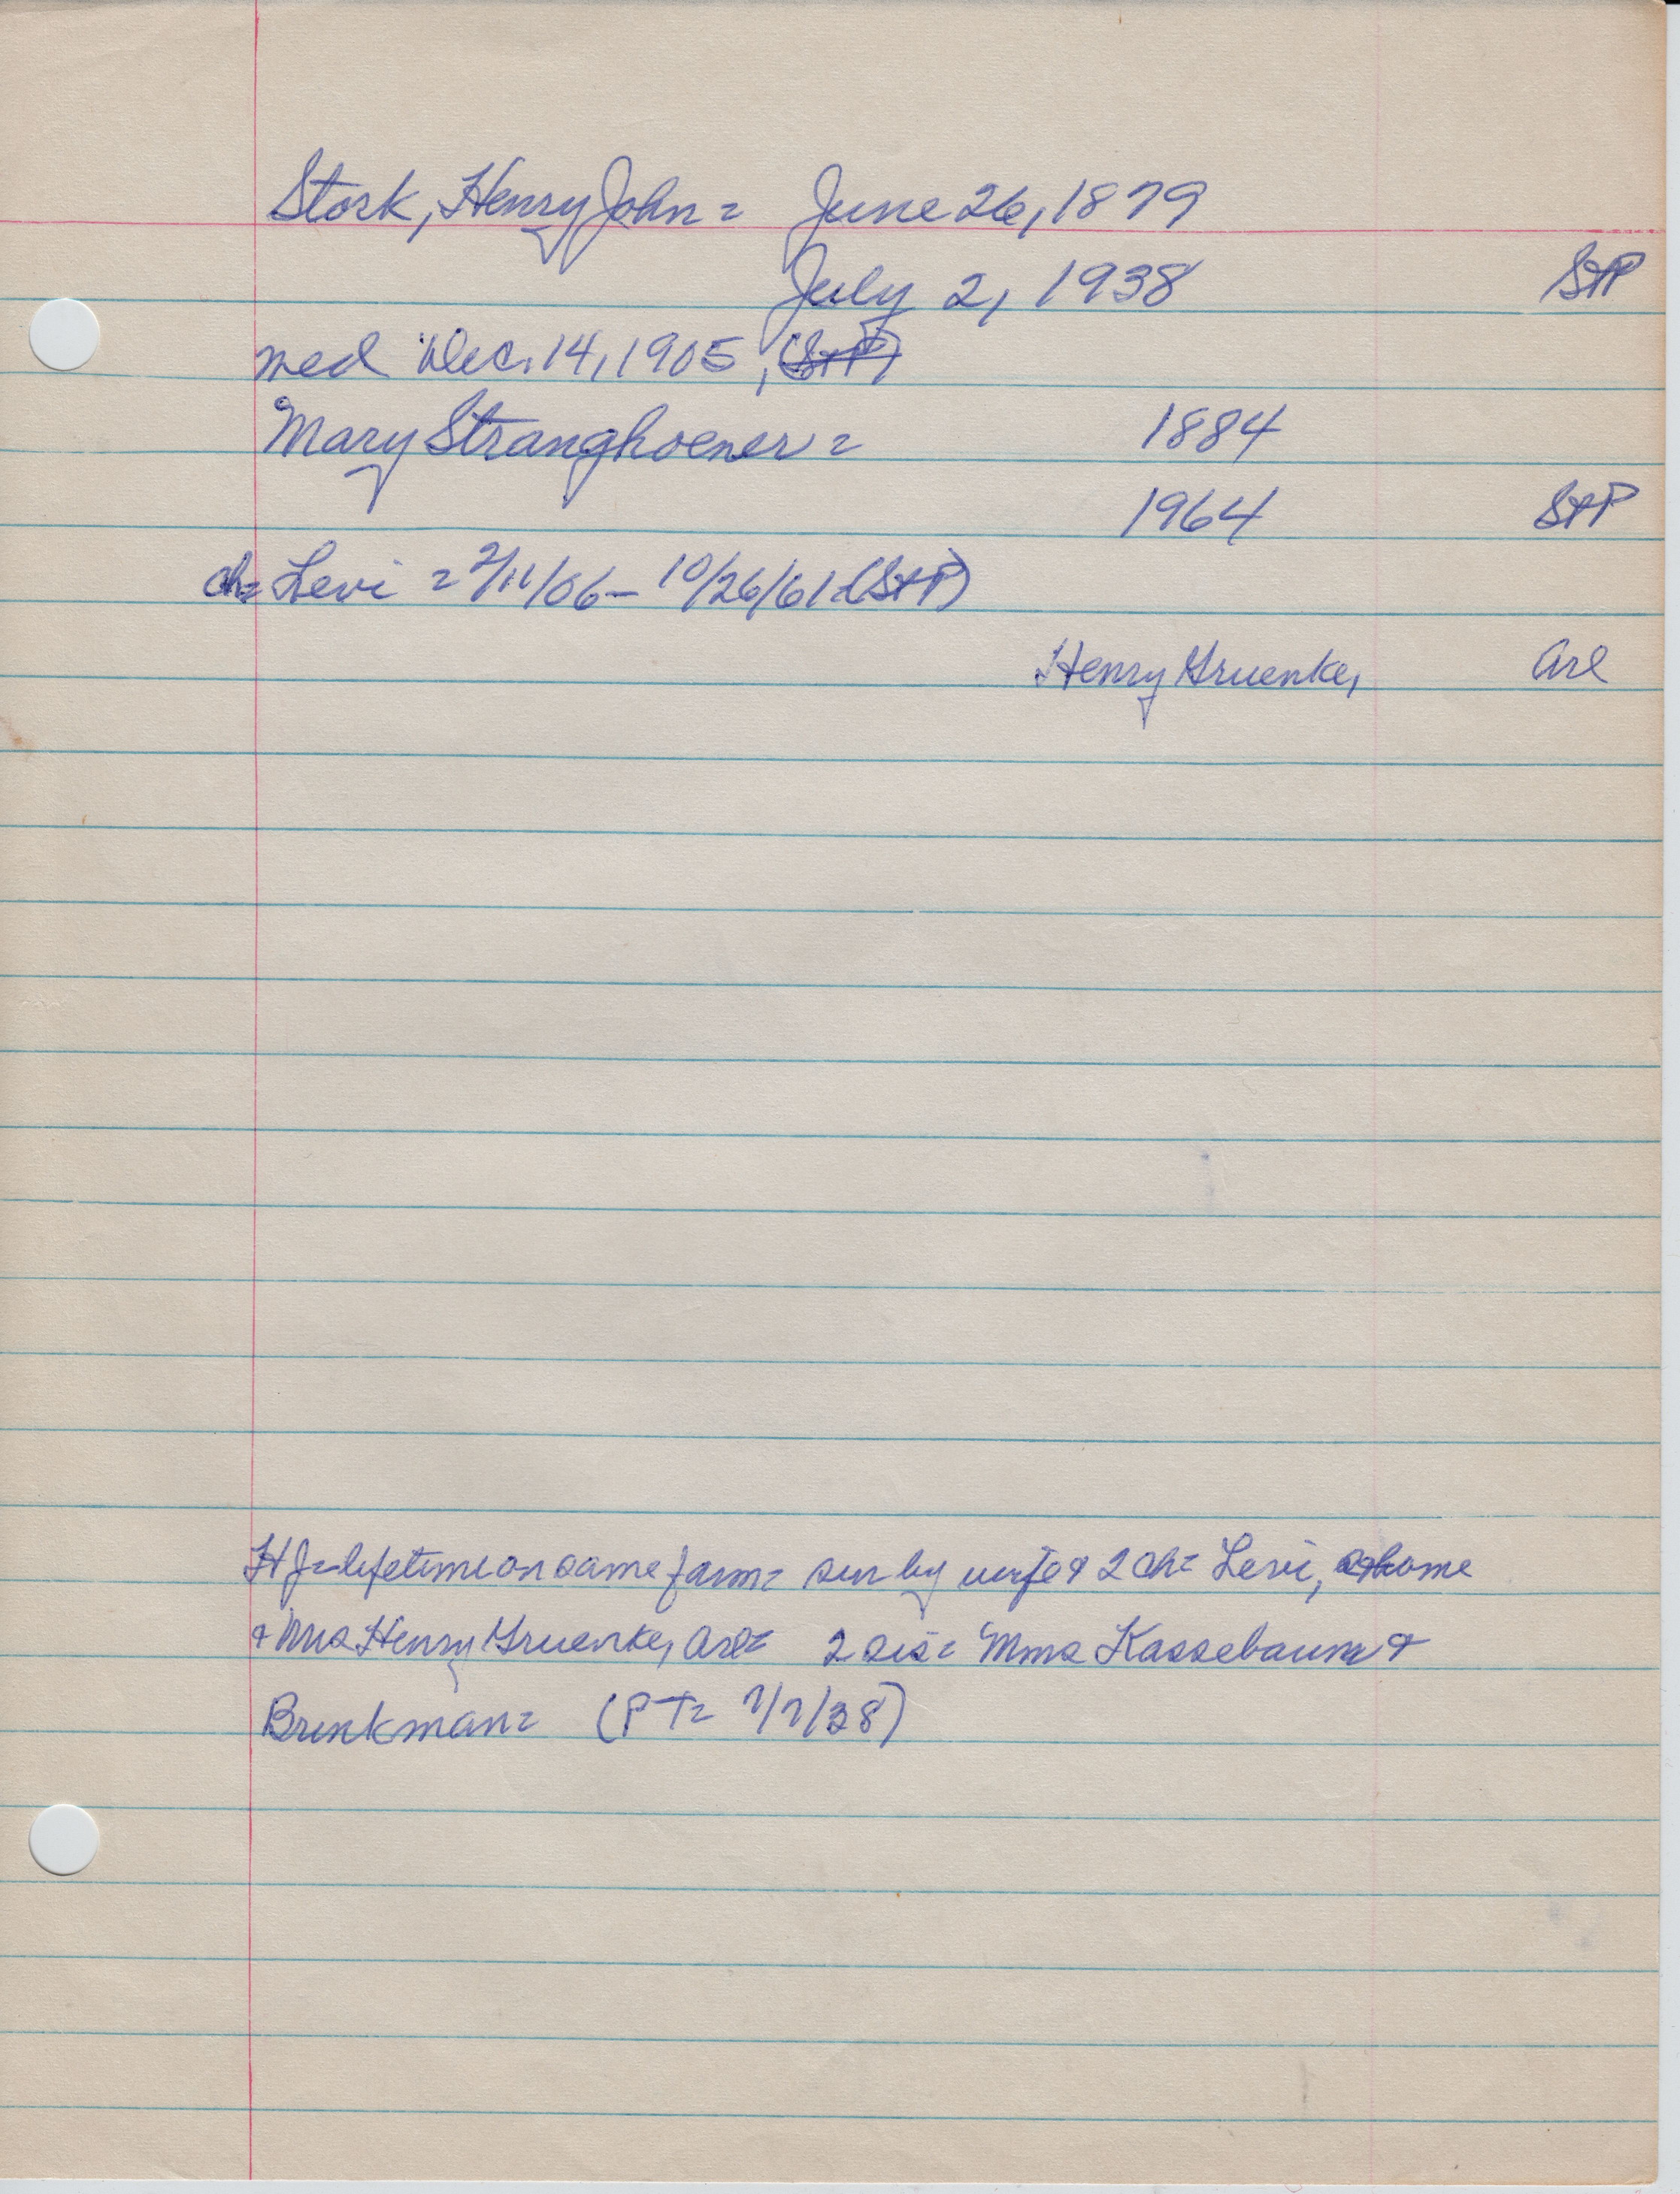 Stork, Henry John = June 26, 1879
July 2, 1938 StP
med Dec. 14, 1905, (StP)
Mary Stranghoener = 1884
1964 StP
ch= Levi = 2/11/06 – 10/26/61 (StP)
Henry Gruenke, Arl
HJ = lifetime on same farm = sur by wife & 2 ch = Levi, at home
& Mrs Henry Gruenke, Arl = 2 sis = Mms Kassebaum &
Brinkman = (PT = 7/7/38)